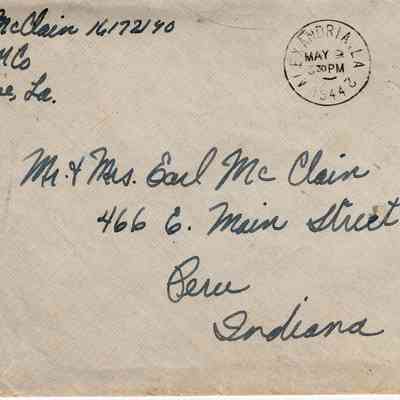 McClain 16172140
Co
La.
ALEXANDRIA, LA.
MAY
30 PM
1944
Mr. & Mrs. Earl Mc Clain
466 E. Main Street
Peru
Indiana